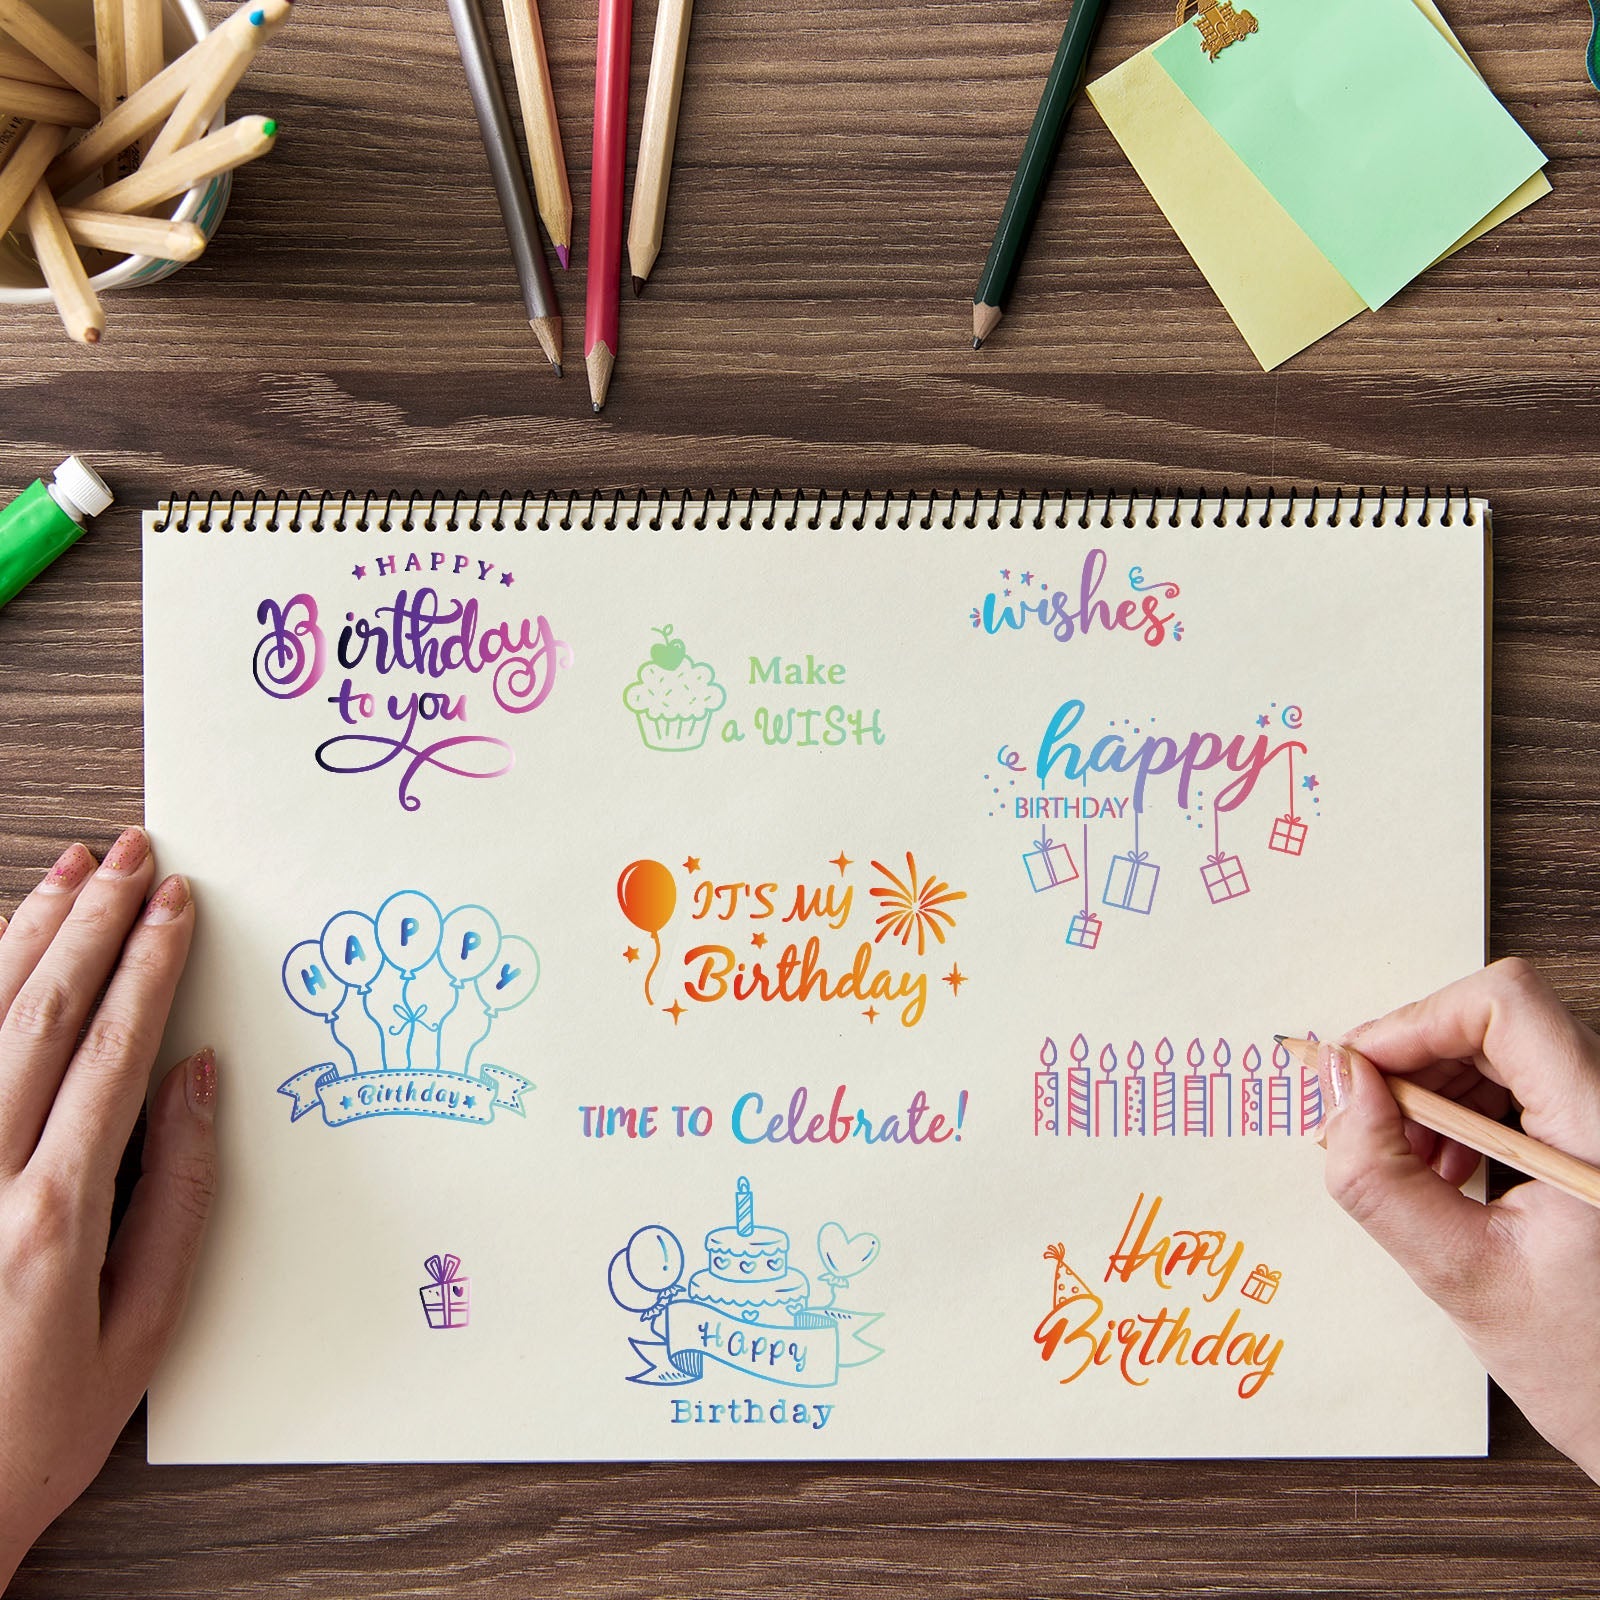 HAPPY
Birthday
to you
Make
a WISH
wishes
happy
BIRTHDAY
HAPPY
Birthday
IT'S MY
Birthday
TIME TO Celebrate!
HAppy
Birthday
HAPPY
Birthday